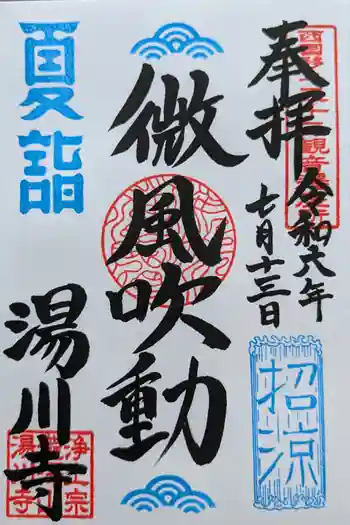 奉拝
令和六年
七月十三日
微風吹動
夏詣
招涼
湯川寺
浄土宗
湯川寺